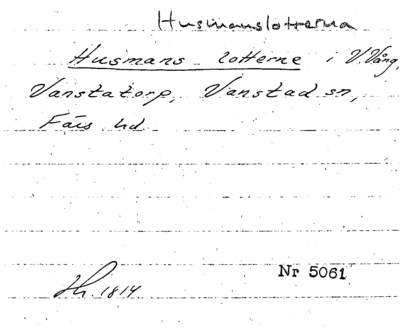 Husmanslotterna
Husmans lotterne i V. Vång,
Vanstatorp, Vanstad sn,
Färs hd
Nr 5061
Hr. 1814